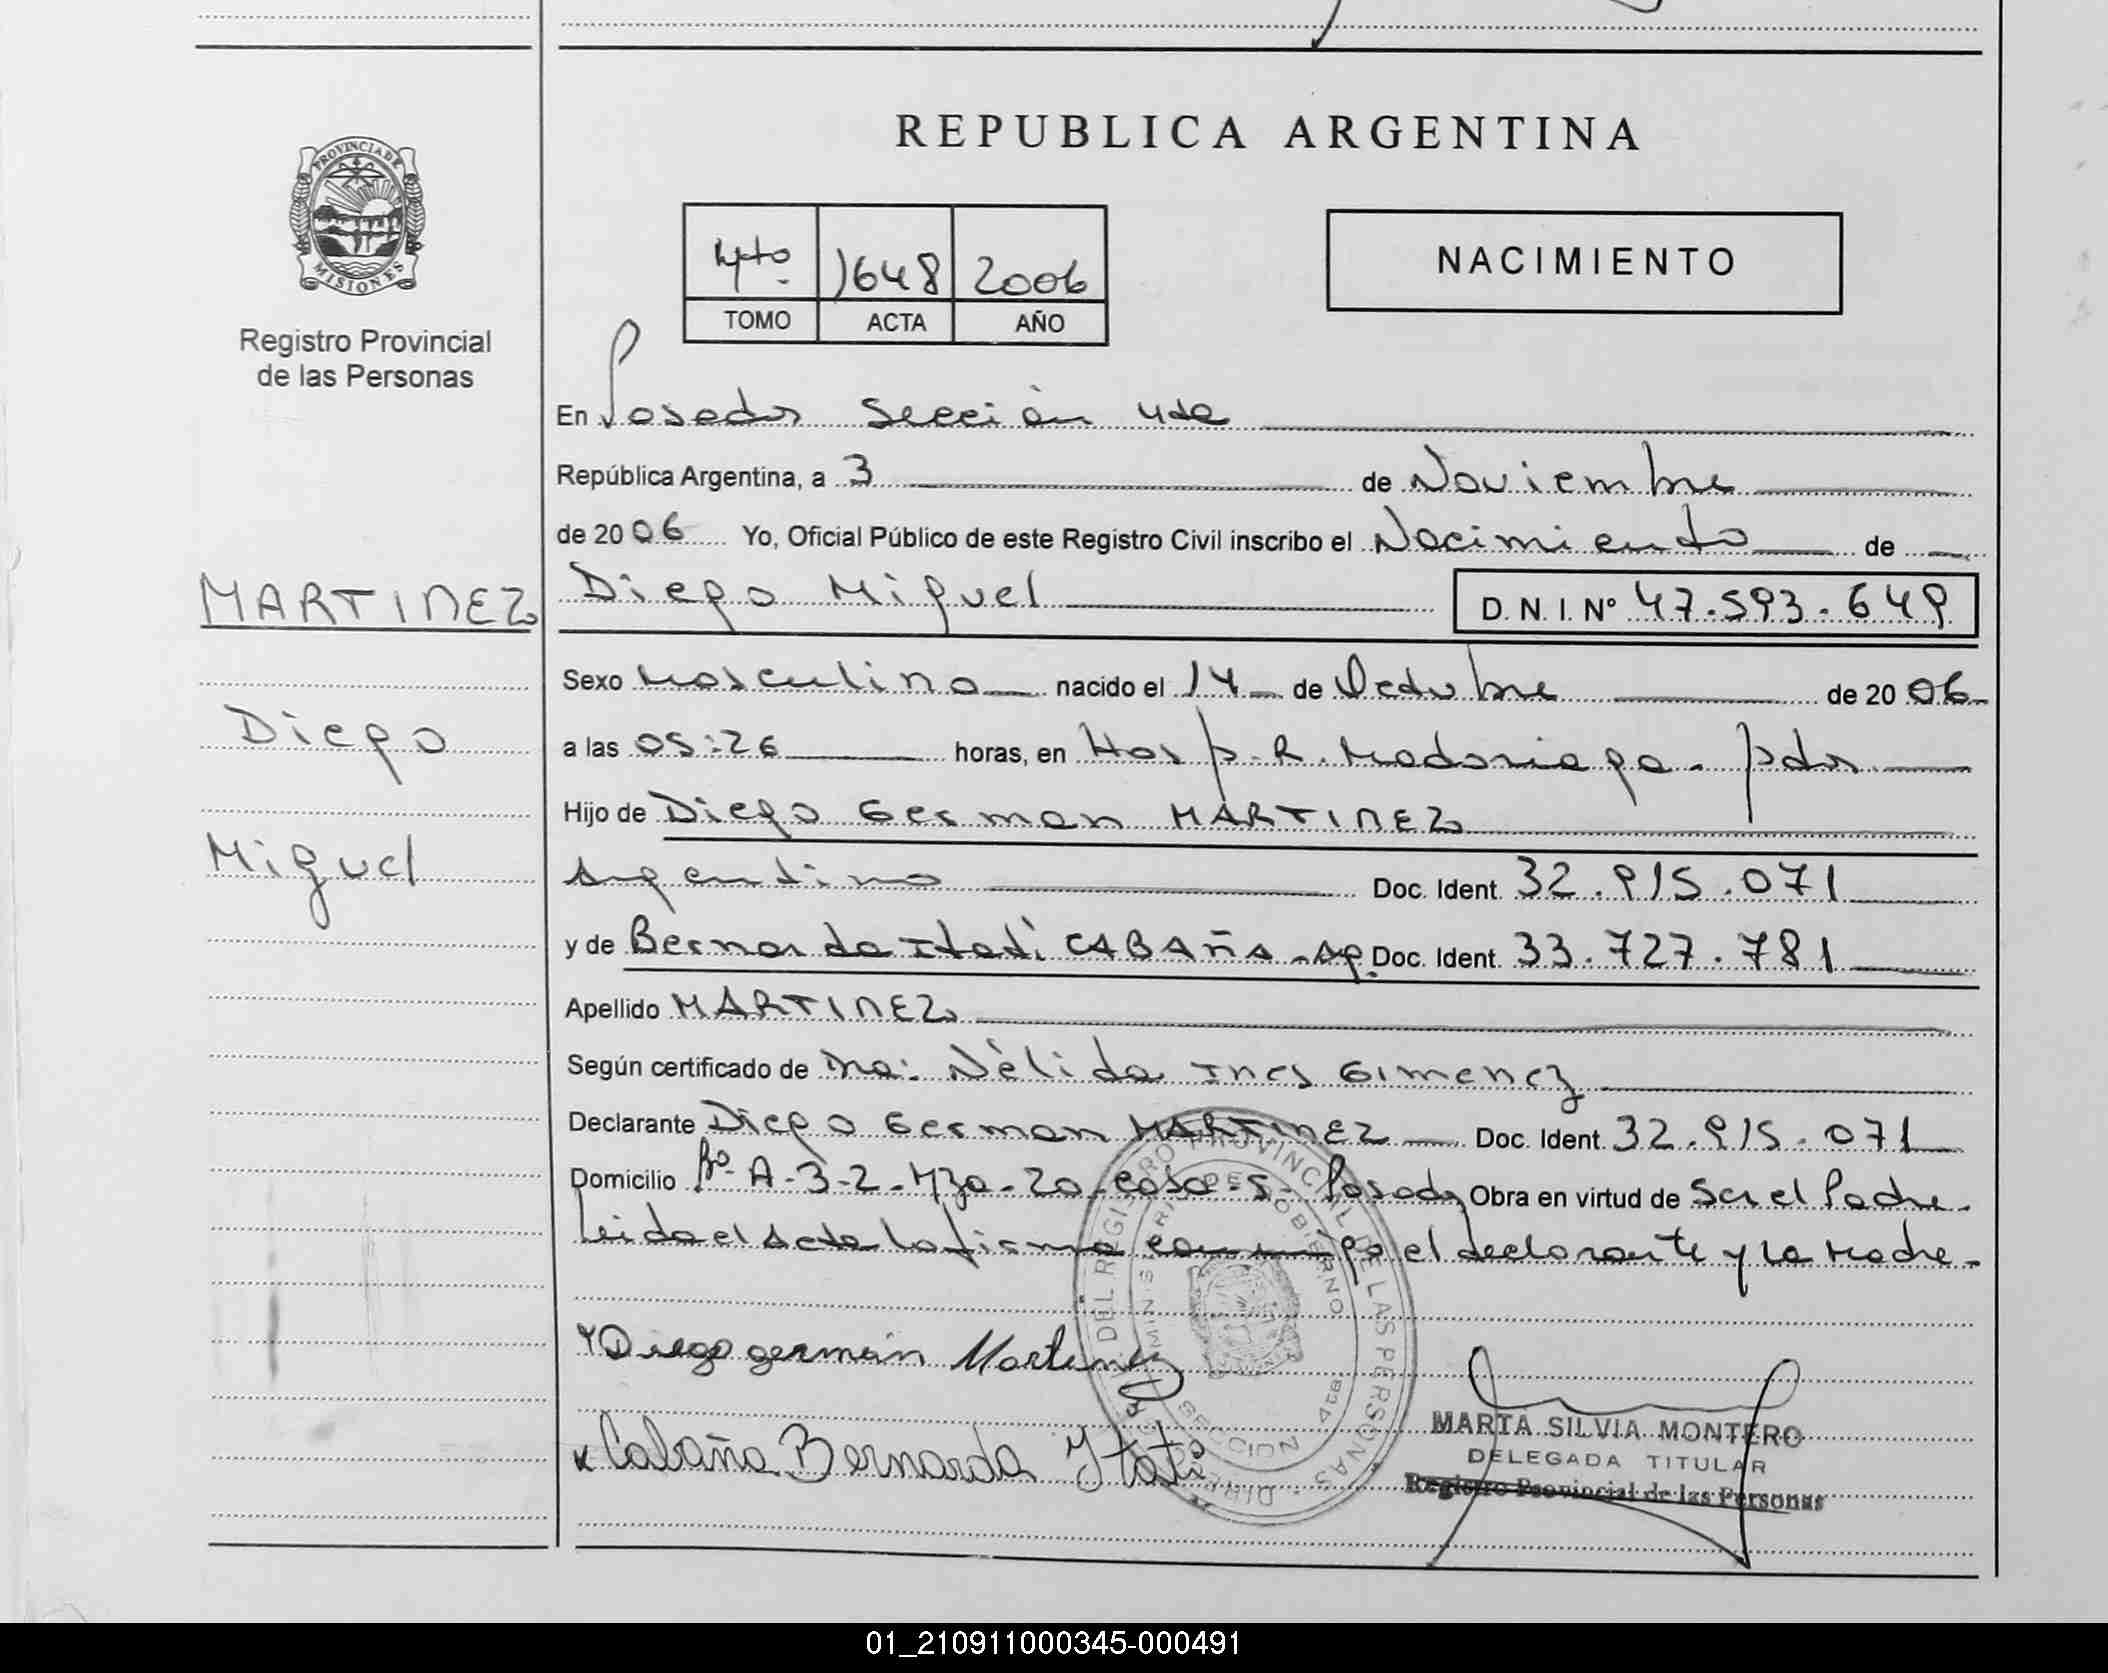 REPUBLICA ARGENTINA
PROVINCIA DE
MISIONES
Registro Provincial
de las Personas
4to. 1648 2006
TOMO ACTA AÑO
NACIMIENTO
En Posadas Sección 4ta
República Argentina, a 3 de Noviembre
de 2006 Yo, Oficial Público de este Registro Civil inscribo el Nacimiento de
MARTINEZ
Diego Miguel D. N. I. Nº 47.593.649
Sexo Masculino nacido el 14 de Octubre de 2006
Diego
a las 05:26 horas, en Hosp. R. Madariaga. Pdas
Hijo de Diego German MARTINEZ
Miguel
Argentino Doc. Ident. 32.915.071
y de Bernarda Itati CABAÑA - Ag. Doc. Ident. 33.727.781
Apellido MARTINEZ
Según certificado de Dra: Nélida Ines Gimenez
Declarante Diego German MARTINEZ Doc. Ident. 32.915.071
Domicilio Bº A-3-2. Mza-20-casa-5- Posadas Obra en virtud de Ser el Padre.
Leida el Acta la firma conmigo el declarante y la Madre.
DEL REGISTRO PROVINCIAL DE LAS PERSONAS
MINISTERIO DE GOBIERNO
SECCION 4ta
Diego germán Martinez
Cabaña Bernarda Itatí
MARTA SILVIA MONTERO
DELEGADA TITULAR
Registro Provincial de las Personas
01_210911000345-000491